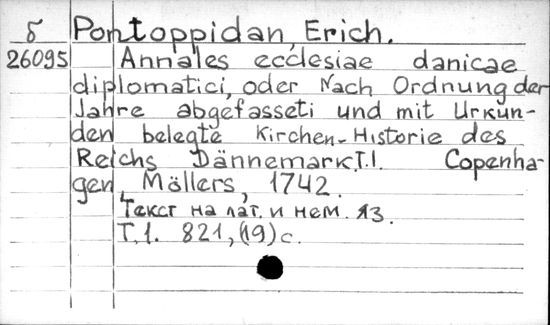 δ Pontoppidan, Erich.
26095 Annales ecclesiae danicae
diplomatici, oder Nach Ordnung der
Jahre abgefasseti und mit Urkun-
den belegte Kirchen-Historie des
Reichs Dännemark. T.I. Copenha-
gen, Möllers, 1742.
Текст на лат. и нем. яз.
Т.1. 821, (19) с.